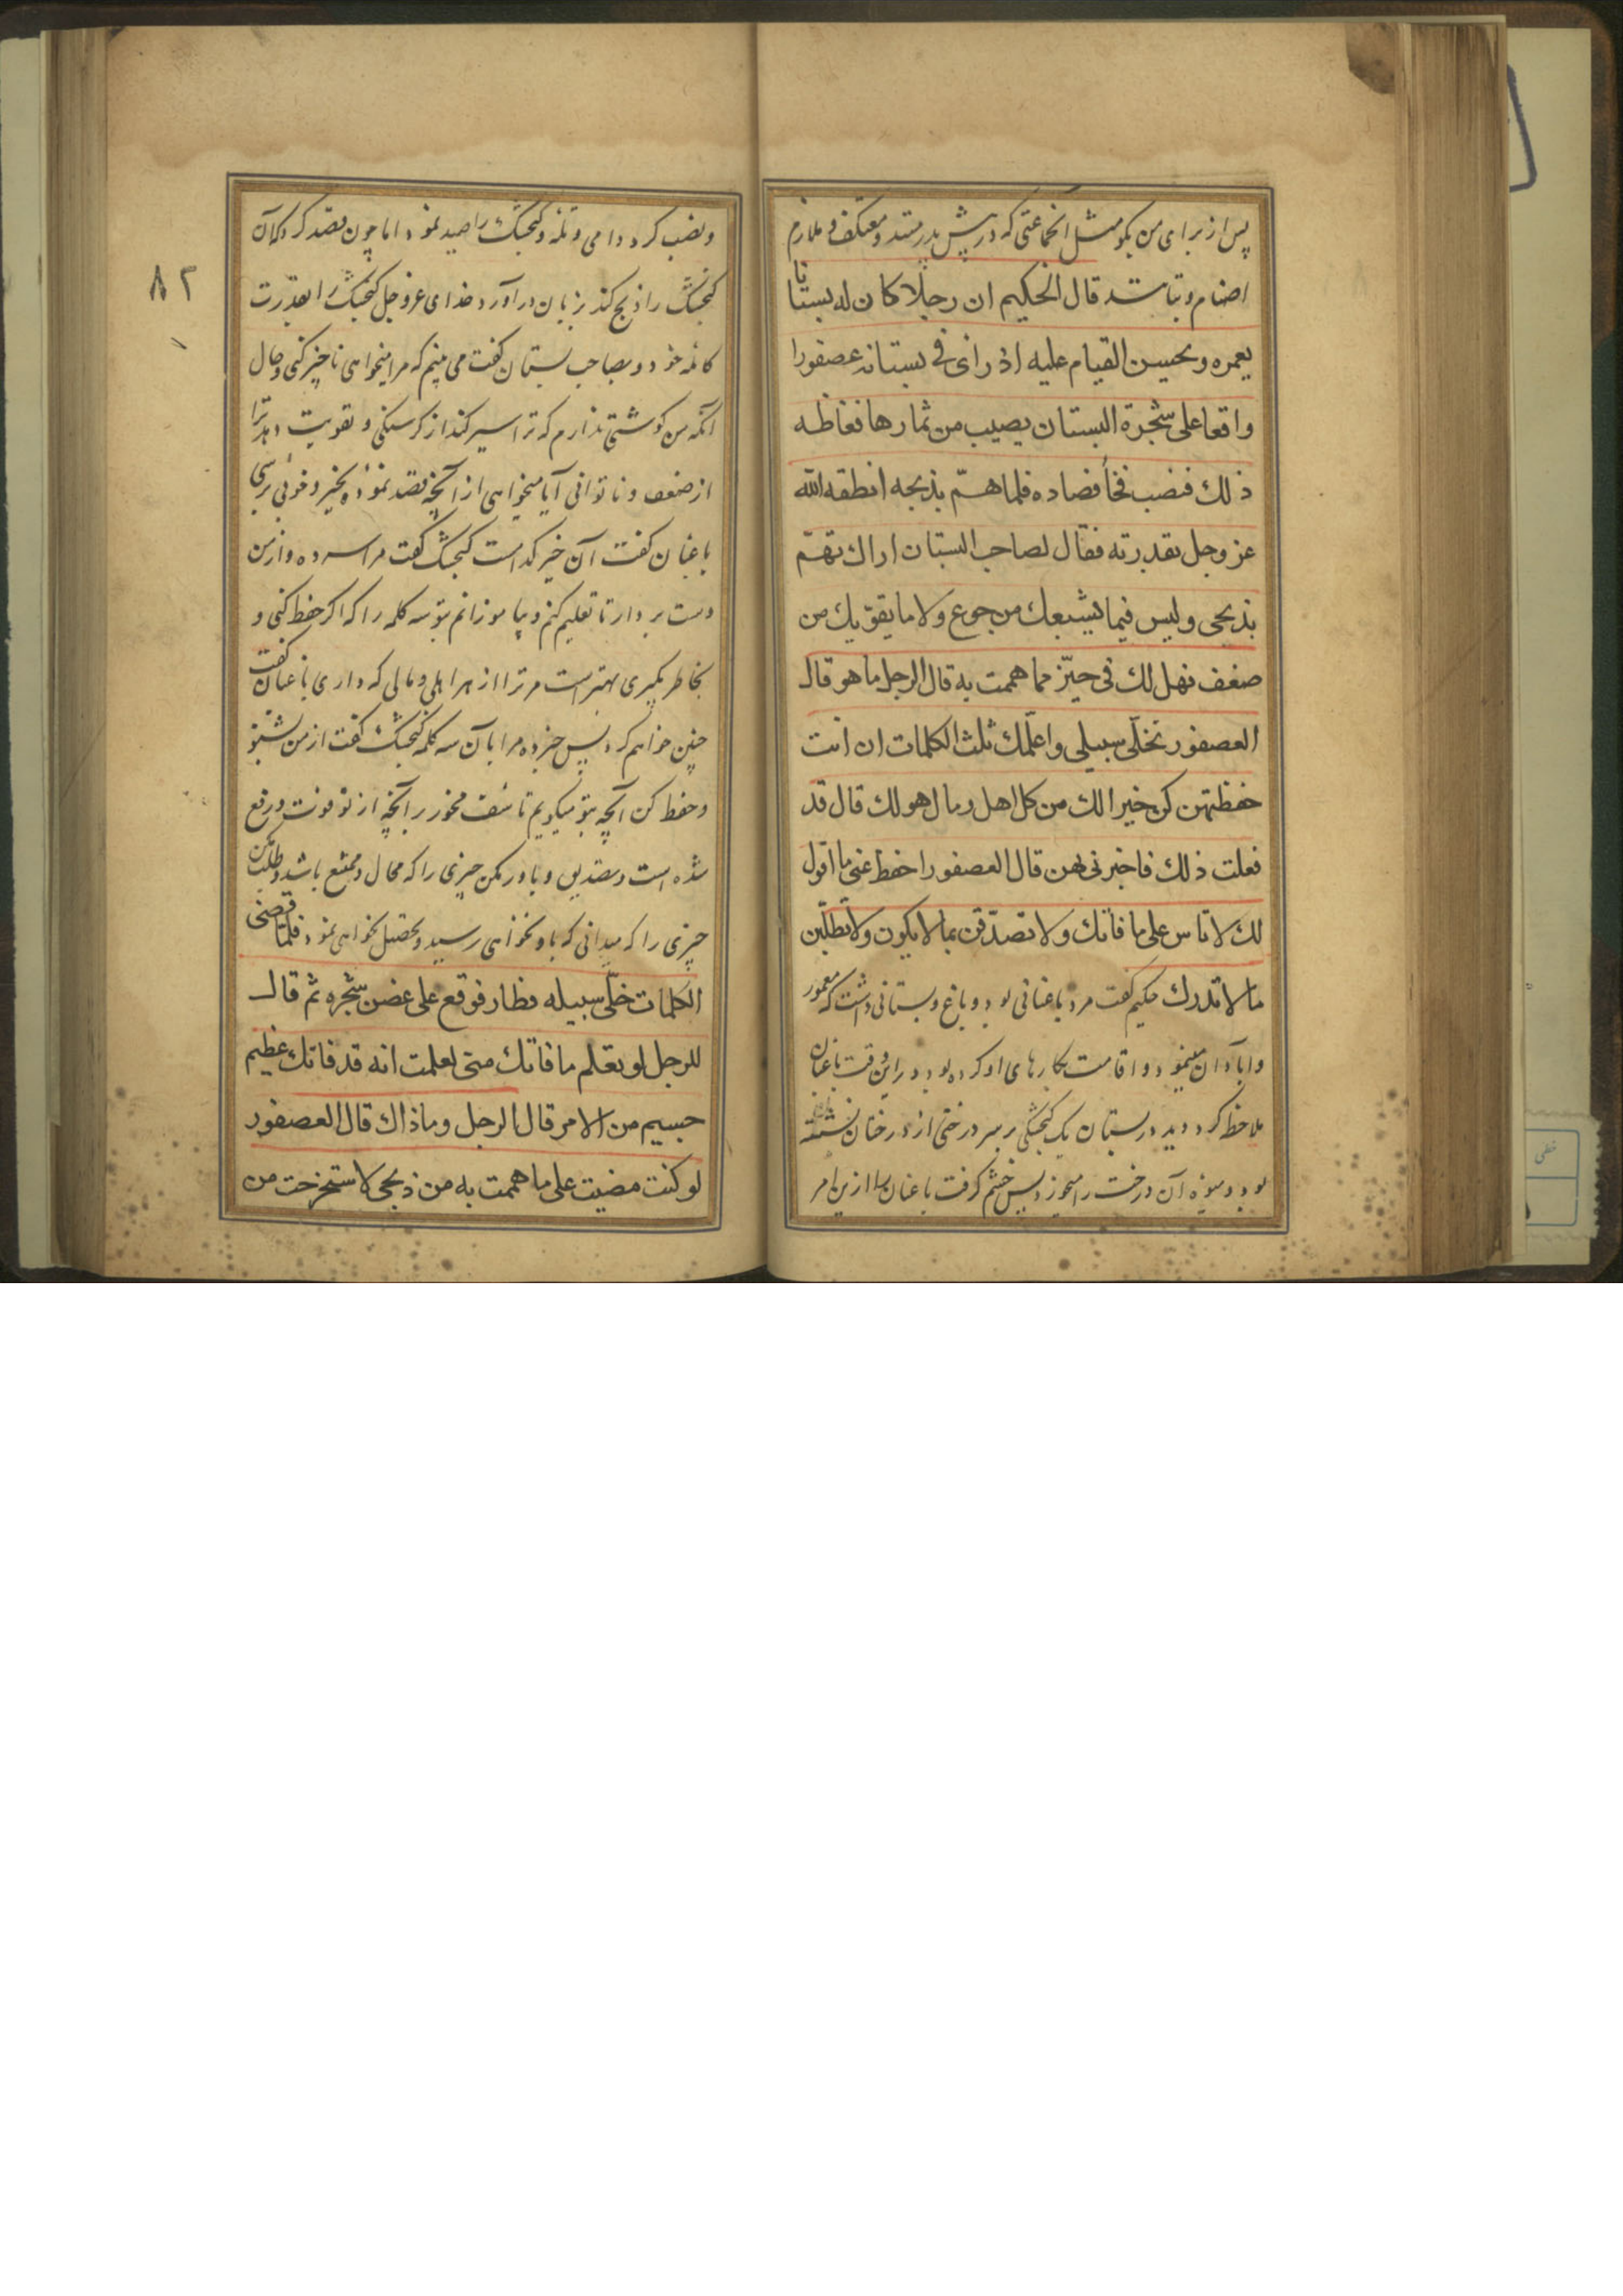 پس از برای من بگو مثل انجماعتی که در پیش بدر مشد و معتکف و ملازم
اصنام و بتا شد قال الحکیم ان رجلا کان له بستانا
یعمره و یحسن القیام علیه اذ رای فی بستانه عصفورا
واقعا علی شجرة البستان یصیب من ثمارها فغاظه
ذلك فنصب فخا فصاده فلما همّ بذبحه انطقه الله
عز وجل بقدرته فقال لصاحب البستان اراك تهمّ
بذبحی ولیس فیما یشبعك من جوع ولا ما یقوّیك من
ضعف فهل لك فی خیر مما هممت به قال الرجل ما هو قال
العصفور تخلّی سبیلی واعلّمك ثلث الکلمات ان انت
حفظتهن کن خیرا لك من کل اهل ومال هو لك قال قد
فعلت ذلك فاخبرنی بهن قال العصفور احفظ عنی ما اقول
لك لا تاس علی ما فاتك ولا تصدّقن بما لا یکون ولا تطلبن
ما لا تدرك حکیم گفت مرد باغبانی بود و باغ و بستانی داشت که معمور
و ابادان مینمود و اقامت بکارهای او کرده بود در این وقت باغبان
ملاحظه کرد دید در بستان یک گنجشکی بر سر درختی از درختان نشسته
بود و میوۀ آن درخت را میخورد پس خشم گرفت باغبان را ازین امر
و نصب کرد دامی و تله و گنجشک را صید نمود اما چون قصد کرد که آن
گنجشک را ذبح کند بزبان در آورد خدای عز و جل گنجشک را بقدرت
کامله خود و بصاحب بستان گفت می بینم که مرا میخواهی ناچیز کنی و حال
آنکه من گوشتی ندارم که ترا سیر کند از گرسنگی و تقویت دهد ترا
از ضعف و ناتوانی آیا میخواهی از آنچه قصد نمودۀ بخیر و خوبی برسی
باغبان گفت آن خیر کدامست گنجشک گفت مرا سر ده و از من
دست بردار تا تعلیم کنم و بیاموزانم بتو سه کلمه را که اگر حفظ کنی و
بخاطر بگیری بهتر است مر ترا از هر اهلی و مالی که داری باغبان گفت
چنین خواهم کرد پس خبر ده مرا بآن سه کلمه گنجشک گفت از من بشنو
و حفظ کن آنچه بتو میگویم تاسّف مخور بر آنچه از تو فوت و رفع
شده است و تصدیق و باور مکن چیزی را که محال و ممتنع باشد و طلب مکن
چیزی را که میدانی که باو نخواهی رسید و تحصیل نخواهی نمود فلمّا قضی
الکلمات خلّی سبیله فطار فوقع علی غصن شجره ثم قال
للرجل لو تعلم ما فاتك منی لعلمت انه قد فاتك عظیم
جسیم من الامر قال الرجل وما ذاك قال العصفور
لو کنت مضیت علی ما هممت به من ذبحی لاستخرجت من
٨٢